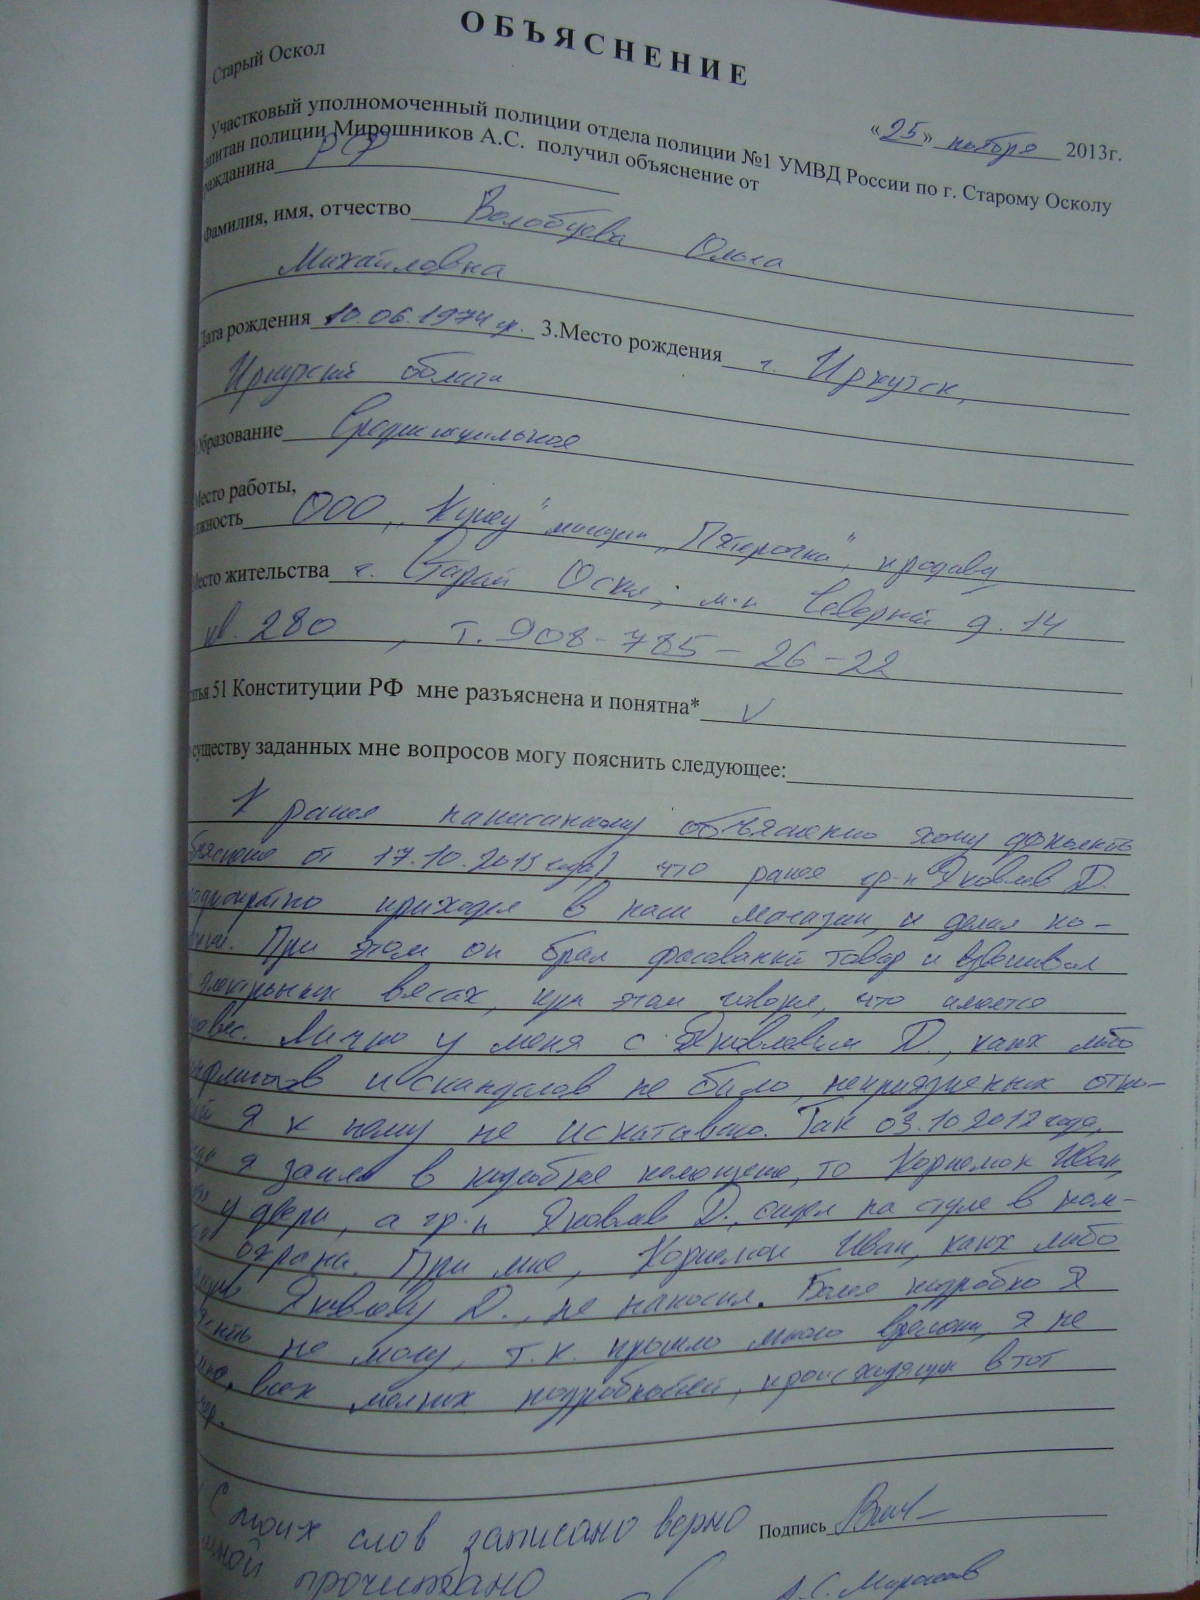 ОБЪЯСНЕНИЕ
Старый Оскол
«25» ноября 2013г.
Участковый уполномоченный полиции отдела полиции №1 УМВД России по г. Старому Осколу
капитан полиции Мирошников А.С. получил объяснение от
гражданина РФ
Фамилия, имя, отчество Волобуева Ольга
Михайловна
Дата рождения 10.06.1974 г. 3.Место рождения г. Иркутск,
Иркутской области
Образование Средне специальное
Место работы,
должность ООО „ " магазин „Пятерочка", продавец
Место жительства г. Старый Оскол, м-н Северный д. 14
кв. 280 , т. 908-785-26-22
статья 51 Конституции РФ мне разъяснена и понятна* V
существу заданных мне вопросов могу пояснить следующее:
К ранее написанному объяснению хочу дополнить
от 17.10.2013 года) что ранее гр-н Яковлев Д.
неоднократно приходил в наш магазин, и делал по-
купки. При этом он брал фасованный товар и взвешивал
электрнных весах, при этом говоря, что имеется
Лично у меня с Яковлевым Д., каких либо
конфликтов и скандалов не было, неприязненных отно-
Я к нему не испытываю. Так 03.10.2012 года,
я зашла в подсобное помещение, то Корнелюк Иван,
у двери, а гр-н Яковлев Д., сидел на стуле в ком-
охраны. При мне, Корнелюк Иван, каких либо
Яковлеву Д., не наносил. Более подробно Я
не могу, т.к. прошло много времени, я не
всех мелких подробностей, происходящих в тот
С моих слов записано верно Подпись
мной прочитано
А.С. Мирошников